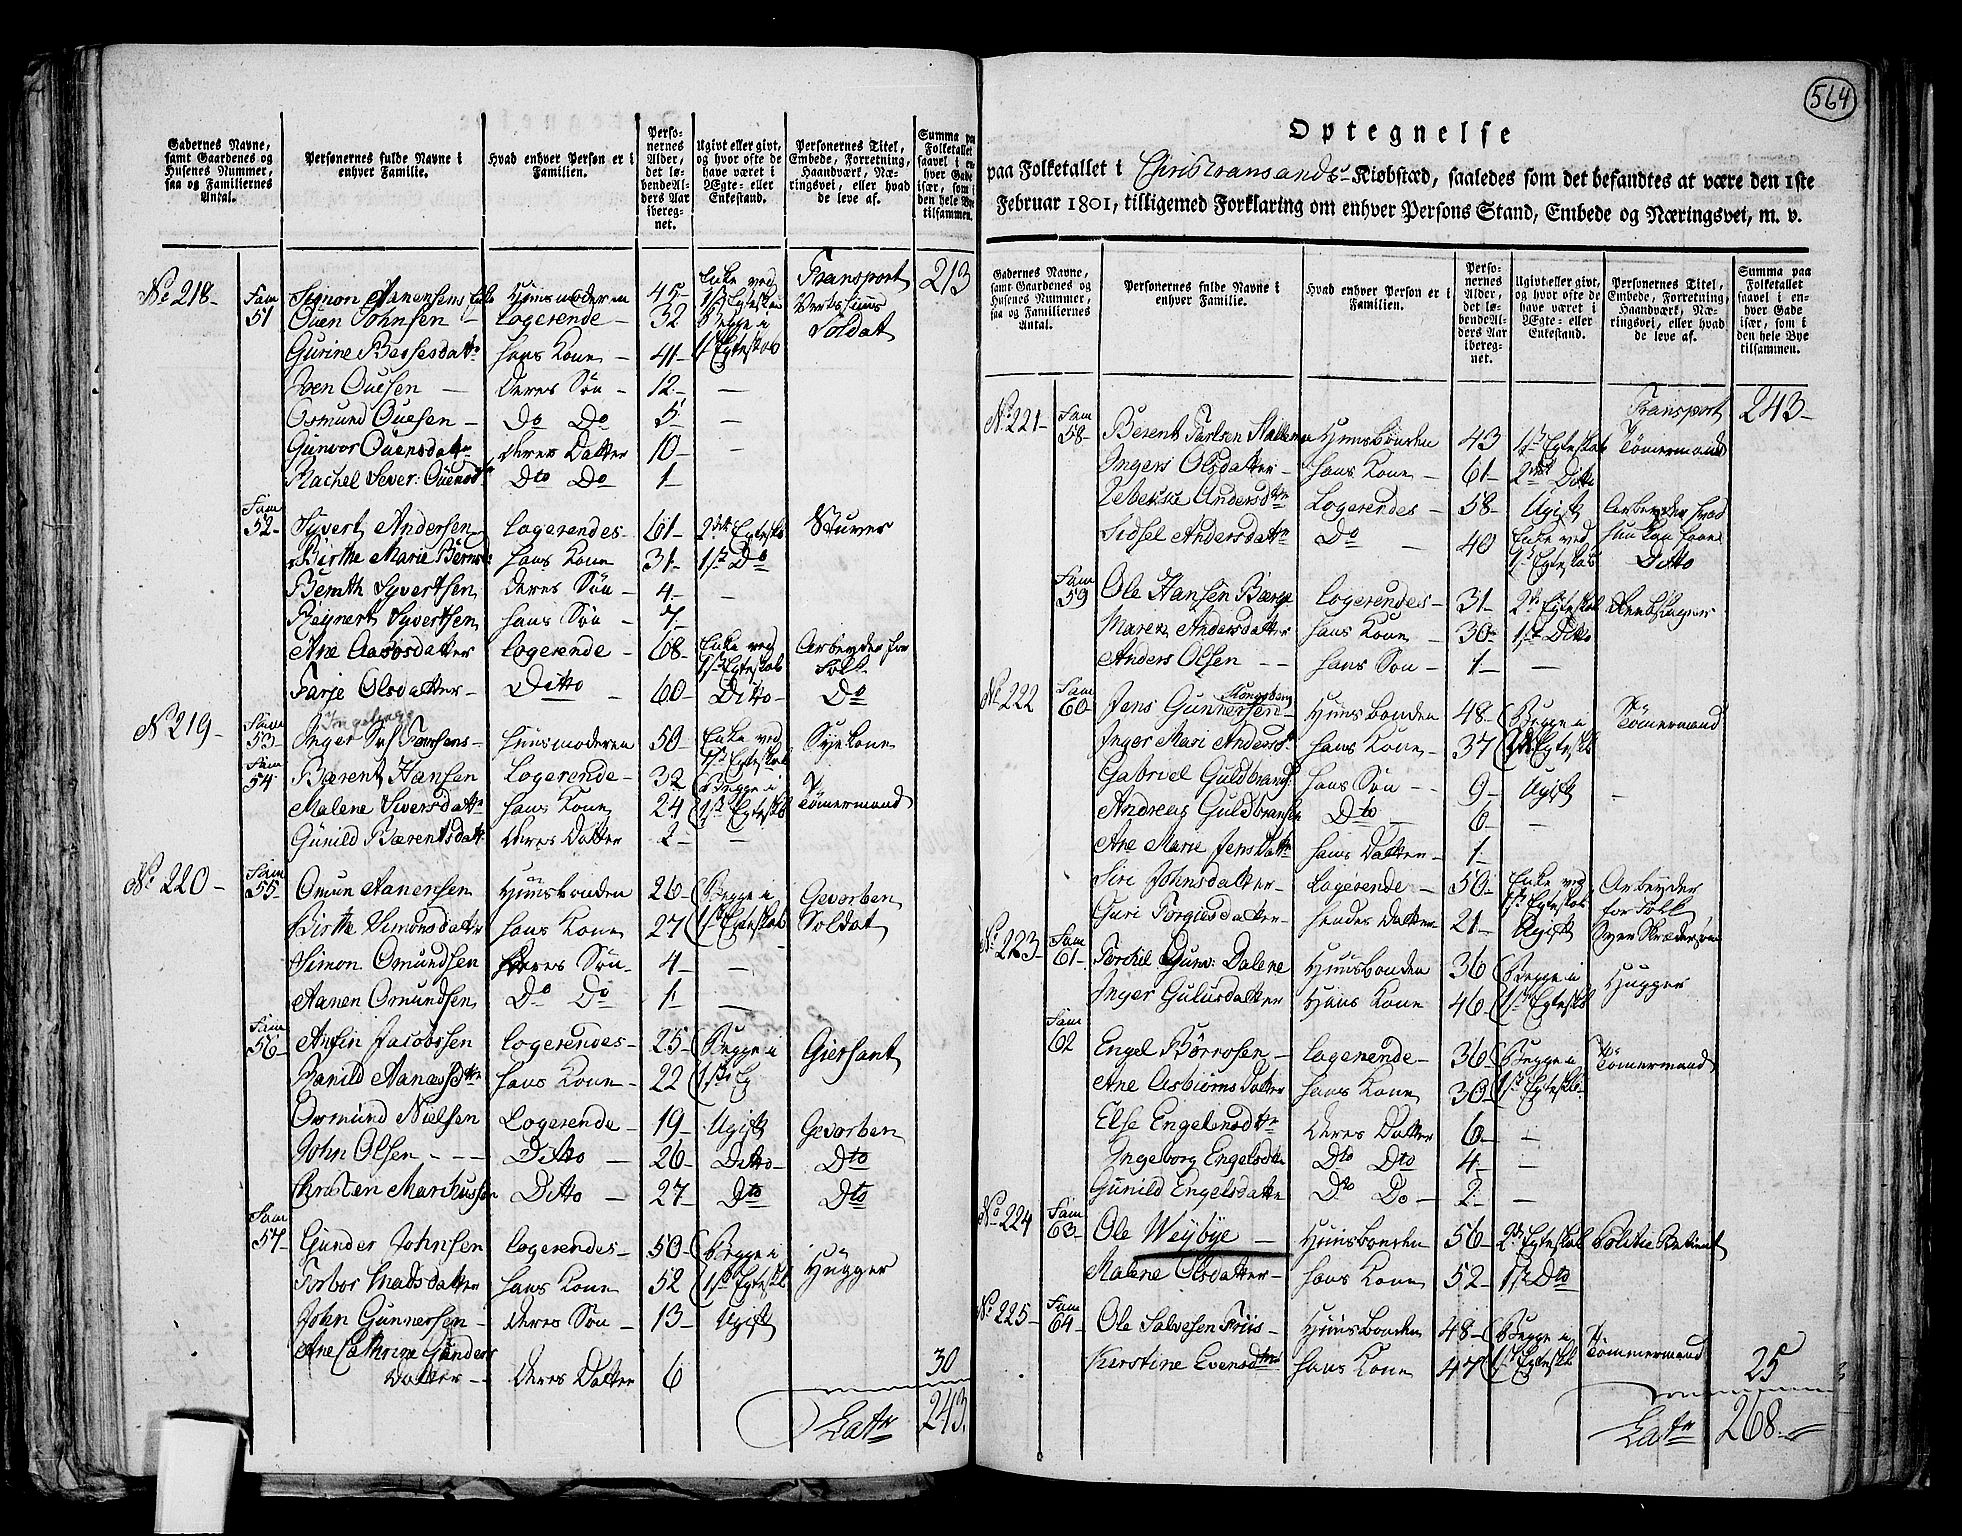 Gadernes Navne, samt Gaardenes og Husenes Nummer, saa og Familiernes Antal.
Personernes fulde Navne i enhver Familie.
Hvad enhver Person er i Familien.
Personernes Alder, det løbendeAlders Aar iberegnet.
Ugivt eller givt, og hvor ofte de have været i Ægte- eller Enkestand.
Personernes Titel, Embede, Forretning, Haandværk, Næringsvei, eller hvad de leve af.
Summa paa Folketallet saavel i enhver Gade især, som i den hele Bye tilsammen.
Transport 213
No 218 Fam 51 Aanensens Enke Huusmoderen 45 Enke ved 1ste Egteskab
Ouen Johnsen Logerende 32 Begge i 1 Egteskab Soldat
Gurine hans Kone 41
Iven Ouesen Deres Søn 12 —
Osmund Ouesen Do Do 5 —
Gunvor Ouensdattr deres Datter 10 —
Rachel Sever: Ouensd Dto Do 1
Fam 52 Syvert Andersen Logerendes 61 2det Egteskb Stuver
Birthe Marie hans Kone 31 1ste Do
Bernth Syvertsen deres Søn 4 —
Reinert Syvertsen hans Søn 7 —
Ane Logerende 68 Enke ved 1ste Egteskab Arbeyder for Folk
Tarje Olsdatter Ditto 60 Ditto Do
No 219 Fam 53 Inger Huusmoderen 50 Enke ved 1ste Egteskab Syekone
Fam 54 Bærent Hansen Logerende 32 Begge i Tømermand
Malene Siversdattr hans Kone 24 1ste Egteskb
Gunild Bærentsdatt deres Datter 2 —
No 220 Fam 55 Omun Aanensen Huusbonden 26 Begge i Gevorben
Birthe Simonsdatter hans Kone 27 1ste Egteskab Soldat
Simon Omundsen deres Søn 4 —
Aanen Omundsen Do Do 1 —
Fam 56 Anfin Jacobssen Logerendes 25 Begge i Giersant
hans Kone 22 1ste Eg
Osmund Nielsen Logerende 19 Ugift Gevorben
John Olsen Ditto 26 Ditto Dto
Christen Marchussen Ditto 27 Dto Dto
Fam 57 Gunder Johnsen Logerendes 50 Begge i Hugger
Torbor Madsdatter hans Kone 52 1ste Egteskb
John Gunnersen Deres Søn 13 Ugift
Ane Cathrine Gunders
Datter Deres Datter 6
30
Latr 243
564
Optegnelse
paa Folketallet i Christiansands Kiøbstæd, saaledes som det befandtes at være den 1ste
Februar 1801, tilligemed Forklaring om enhver Persons Stand, Embede og Næringsvei, m. v.
Gadernes Navne, samt Gaardenes og Husenes Nummer, saa og Familiernes Antal.
Personernes fulde Navne i enhver Familie.
Hvad enhver Person er i Familien.
Personernes Alder, det løbendeAlders Aar iberegnet.
Ugivt eller givt, og hvor ofte de have været i Ægte- eller Enkestand.
Personernes Titel, Embede, Forretning, Haandværk, Næringsvei, eller hvad de leve af.
Summa paa Folketallet saavel i enhver Gade især, som i den hele Bye tilsammen.
Transport 243
No 221 Fam 58 Berent Huusbonden 43 1ste Egteskab Tømermand
Ingers Olsdatter hans Kone 61 2det Ditto
Andersdtr Logerendes 58 Ugift Arbeyder hvad
Sidsel Andersdattr Do 40 Enke ved 1ste Egteskab hun kan Ditto
Fam 59 Ole Hansen Logerendes 31 2det Egteskab Reebslager
Maren Andersdatter hans Kone 30 1ste Ditto
Anders Olsen hans Søn 1 —
No 222 Fam 60 Jens Gunnersen Kongsberg Huusbonden 48 Begge i Tømermand
Inger Mari Andersd hans Kone 37 Egteskb
Gabriel Guldbrand: hans Søn 9 Ugift —
Andreas Guldbransen Dto 6 —
Ane Marie Jensdattr hans Datter 1
Siri Johnsdatter Logerende 50 Enke ved 1ste Egteskab Arbeyder for Folk
Guri Torgiesdatter hendes Datter 21 Ugift Syer
No 223 Fam 61 Torkil Gunv: Dalene Huusbonden 36 Begge i Hugger
Inger Gulusdatter Hans Kone 46 1ste Egteskb
Fam 62 Engel Børrosen Logerende 36 Begge i Tømermand
Ane Asbiørns Datter hans Kone 30 1ste Egteskb
Else Engelsdtr deres Datter 6 —
Ingeborg Engelsdtr Dto Dto 4 —
Gunild Engelsdattr Do Do 2 —
No 224 Fam 63 Ole Weybye Huusbonden 56 2de Egteskab Politie Betient
Malene Olsdatter hans Kone 52 1ste Dto
No 225 Fam 64 Ole Salvesen Friis Huusbonden 48 Begge i Tømmermand
Kerstine Evensdtr hans Kone 47 1ste Egteskb
25
Latr 268